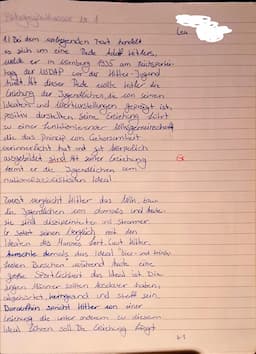 Pädagogikklausur Nr. 1
Lea
1) Bei dem vorliegenden Text handelt
es sich um eine Rede Adolf Hitlers,
welche er in Nürnberg 1935 am Reichspartei-
tag der NSDAP vor der Hitler-Jugend
hielt. Mit dieser Rede wollte Hitler die
Erziehung der Jugendlichen, die von seinen
Idealen und Wertvorstellungen geprägt ist,
positiv darstellen. Seine Erziehung führt
zu einer funktionierender Volksgemeinschaft
die das Prinzip von Gehorsamkeit
verinnerlicht hat und gut körperlich
ausgebildet sind. Mit seiner Erziehung
formt er die Jugendlichen zum
nationalsozialistischen Ideal.
Zuerst vergleicht Hitler das
die Jugendlichen von damals und heute
sie sind disziplinierter und strammer.
Er setzt seinen Vergleich mit den
Idealen des Mannes fort. Laut Hitler
herrschte damals das Ideal "bier- und trink-
festen Burschen" während heute eine
große Sportlichkeit das Ideal ist. Die
jungen Männer sollten Ausdauer haben,
abgehärtet, und straff sein.
Daraufhin spricht Hitler von einer
Erziehung die unter anderem zu diesem
Ideal führen soll. Die Erziehung fängt